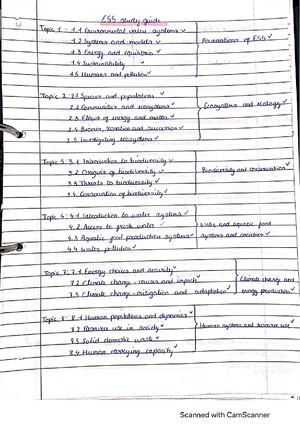 ESS study guide
Topic 1 - 1.1 Environmental value systems
1.2 Systems and models
1.3 Energy and equilibria
1.4 Sustainability
1.5 Humans and pollution
Foundations of ESS
Topic 2: 2.1 Species and populations
2.2 Communities and ecosystems
2.3 Flows of energy and matter
2.4 Biomes, zonation and succession
2.5 Investigating ecosystems
Ecosystems and ecology
Topic 3: 3.1 Introduction to biodiversity
3.2 Origins of biodiversity
3.3 Threats to biodiversity
3.4 Conservation of biodiversity
Biodiversity and conservation
Topic 4: 4.1 Introduction to water systems
4.2 Access to fresh water
4.3 Aquatic food production systems
4.4 Water pollution
Water and aquatic food
systems and societies
Topic 7: 7.1 Energy choices and security
7.2 Climate change - causes and impacts
7.3 Climate change - mitigation and adaptation
Climate change and
energy production
Topic 8: 8.1 Human populations and dynamics
8.2 Resource use in society
8.3 Solid domestic waste
8.4 Human carrying capacity
Human systems and resource use
Scanned with CamScanner